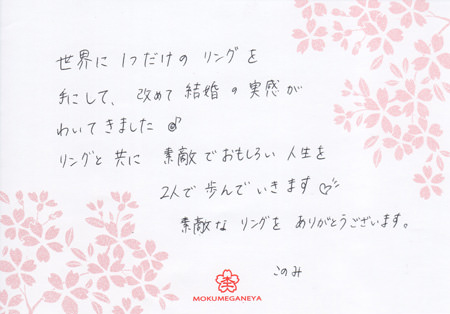 世界に1つだけの リングを
手にして、改めて 結婚の実感が
わいてきました♪
リングと共に 素敵でおもしろい 人生を
2人で 歩んでいきます♡
素敵な リングを ありがとうございます。
このみ
MOKUMEGANEYA